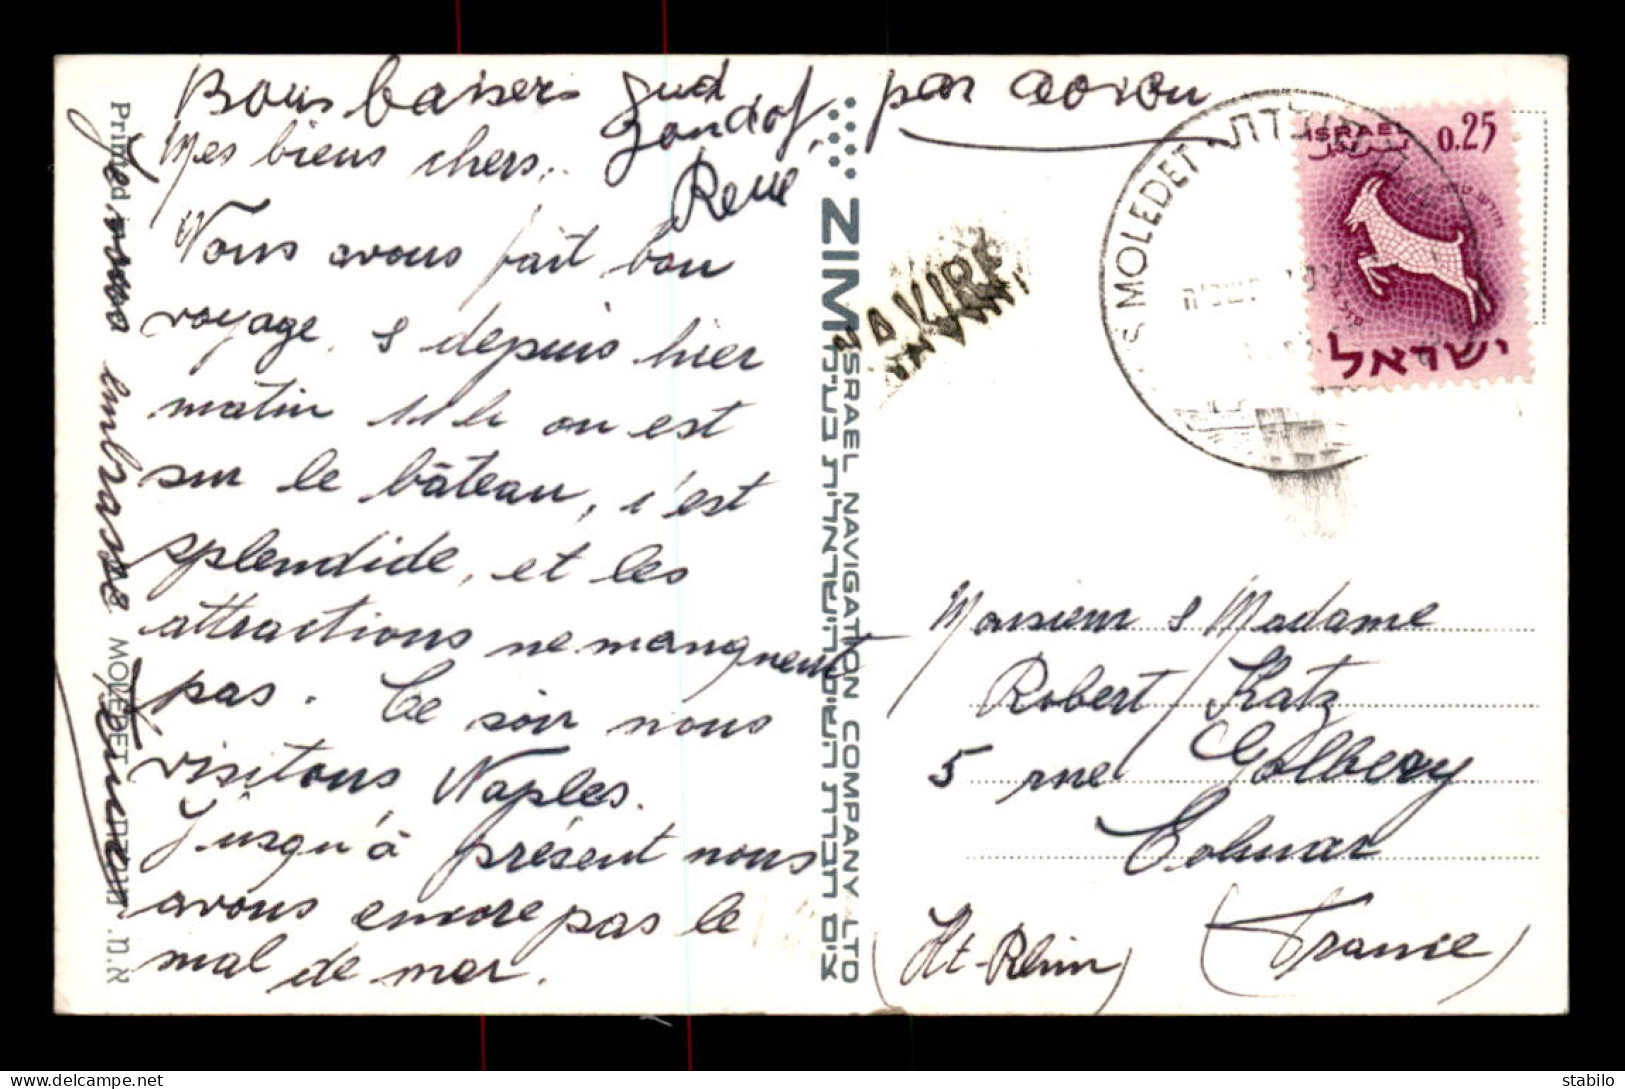 Bons baisers
Mes biens chers,
Nous avous fait bon
voyage, & depuis hier
matin 11 h on est
sur le bâteau, c'est
splendide, et les
attractions ne manquent
pas. Ce soir nous
visitons Naples.
Jusqu'à présent nous
avons encore pas le
mal de mer.
Je vous embrasse
René
Printed
MOLEDET
ZIM ISRAEL NAVIGATION COMPANY LTD
צים חברת השיט הישראלית בע"מ
par avion
NAVIRE
SS MOLEDET
ISRAEL
0.25
ישראל
Monsieur & Madame
Robert Katz
5 rue Golbery
Colmar
(Ht-Rhin) (France)
stabilo